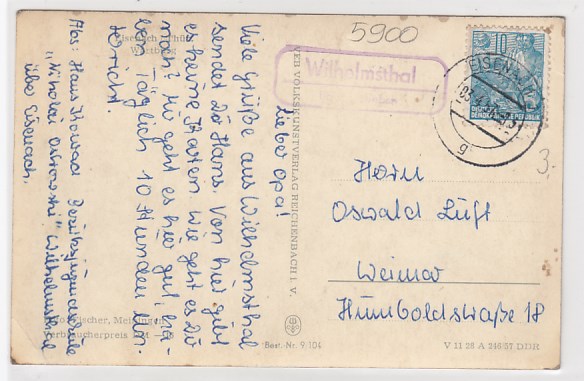 5900
Wilhelmsthal
EISENACH
10
DEUTSCHE
DEMOKRATISCHE REPUBLIK
g
3.-
Herrn
Oswald Luft
Weimar
Humboldstraße 18
V 11 28 A 246/57 DDR
VEB VOLKSKUNSTVERLAG REICHENBACH I. V.
Best.-Nr. 9/104
Lieber Opa!
Viele Grüße aus Wilhelmsthal
sendet Dir Hans. Von hier gibt
es keine Karten. Wie geht es Dir
noch? Mir geht es hier gut. Ha-
ben täglich 10 Stunden Un-
terricht.
Abs: Hans Kowar Bezirksjugendschule
"Nikolai Ostrowski" Wilhelmsthal
über Eisenach.
Wartburg
Foto: Fischer, Meiningen
Verbraucherpreis